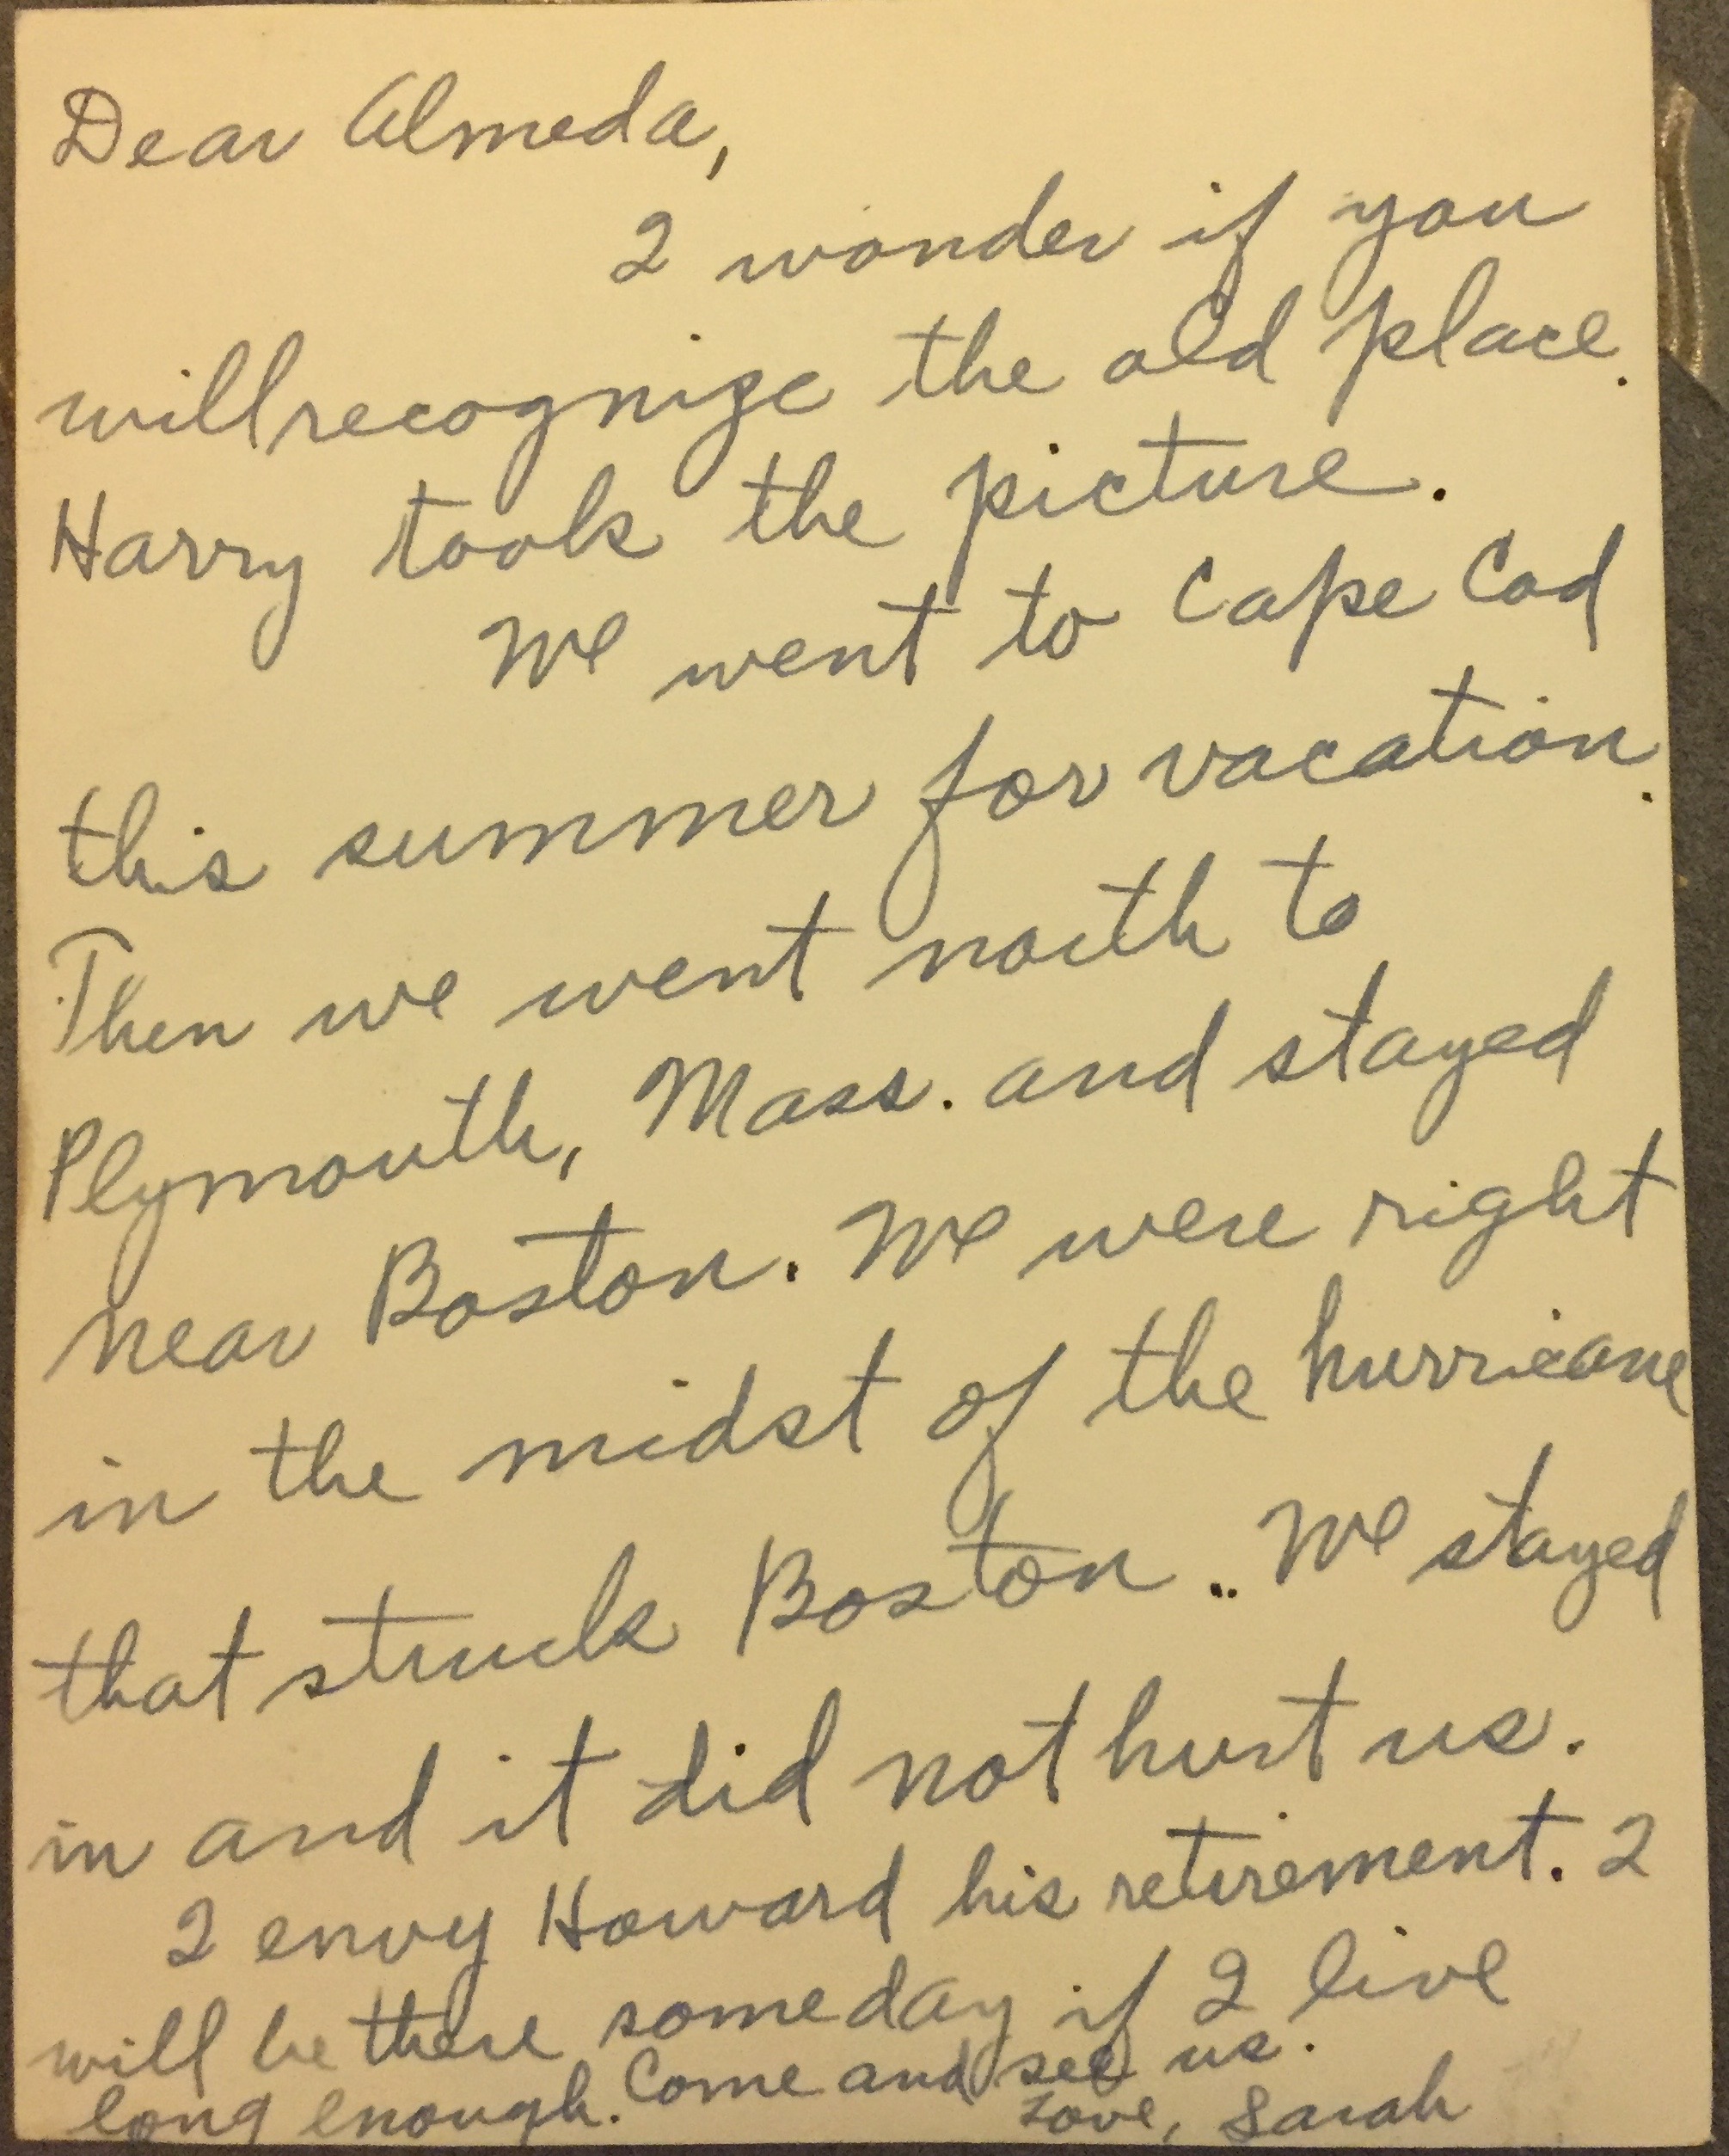 Dear Almeda,
I wonder if you
will recognize the old place.
Harry took the picture.
We went to Cape Cod
this summer for vacation.
Then we went north to
Plymouth, Mass. and stayed
near Boston. We were right
in the midst of the hurricane
that struck Boston.. We stayed
in and it did not hurt us.
I envy Howard his retirement. I
will be there someday if I live
long enough. Come and see us.
Love, Sarah